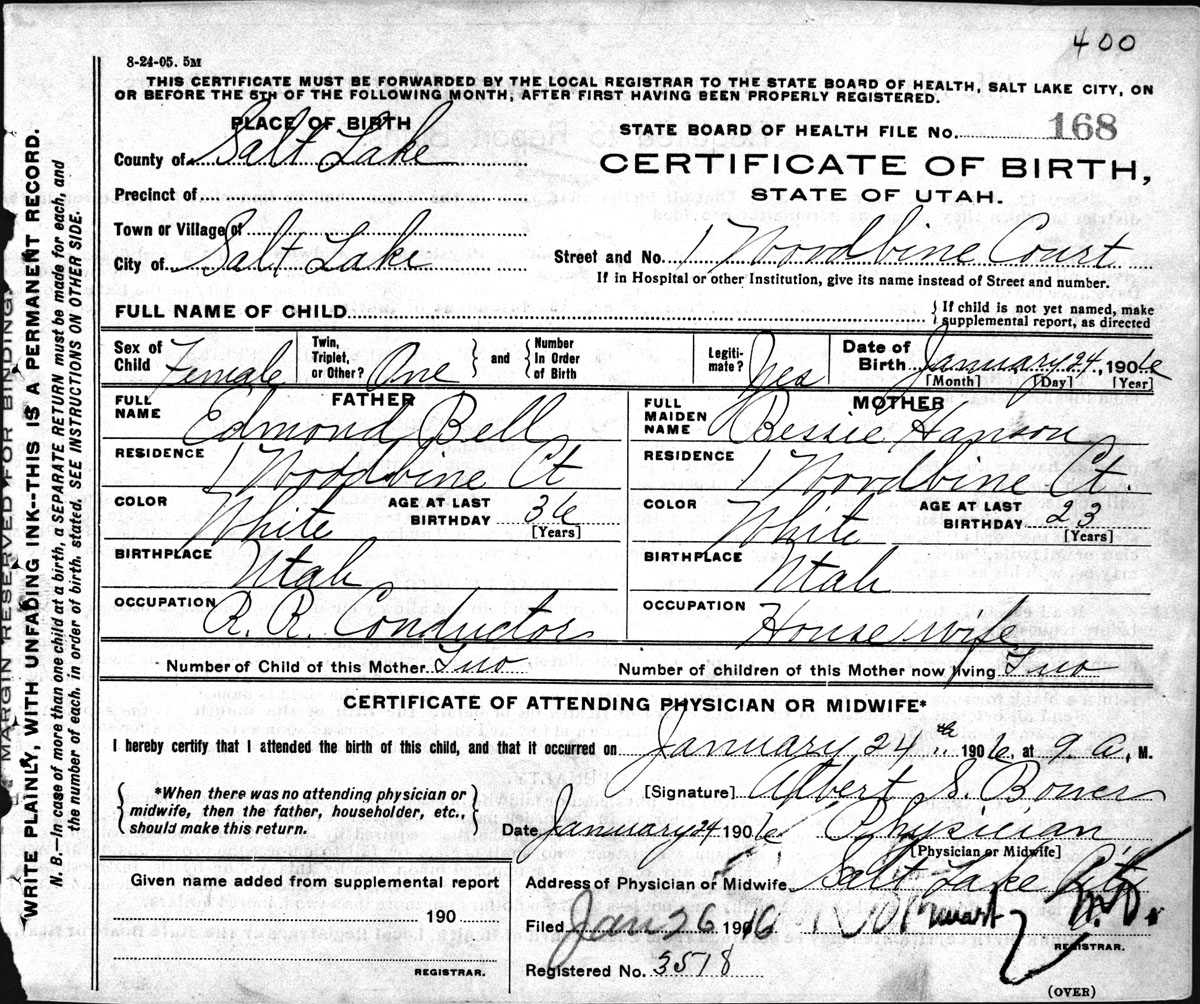 400
8-24-05. 5M
THIS CERTIFICATE MUST BE FORWARDED BY THE LOCAL REGISTRAR TO THE STATE BOARD OF HEALTH, SALT LAKE CITY, ON
OR BEFORE THE 5TH OF THE FOLLOWING MONTH, AFTER FIRST HAVING BEEN PROPERLY REGISTERED.
MARGIN RESERVED FOR BINDING.
WRITE PLAINLY, WITH UNFADING INK--THIS IS A PERMANENT RECORD.
N. B.—In case of more than one child at a birth, a SEPARATE RETURN must be made for each, and
the number of each, in order of birth, stated. SEE INSTRUCTIONS ON OTHER SIDE.
PLACE OF BIRTH
County of Salt Lake
Precinct of
Town or Village of
City of Salt Lake
STATE BOARD OF HEALTH FILE No. 168
CERTIFICATE OF BIRTH,
STATE OF UTAH.
Street and No. 1 Woodbine Court
If in Hospital or other Institution, give its name instead of Street and number.
FULL NAME OF CHILD
If child is not yet named, make
supplemental report, as directed
Sex of Child Female
Twin, Triplet, or Other? One
and
Number In Order of Birth
Legiti-mate? Yes
Date of Birth January 24, 1906
[Month] [Day] [Year]
FATHER
FULL NAME Edmond Bell
RESIDENCE 1 Woodbine Ct
COLOR White AGE AT LAST BIRTHDAY 36
[Years]
BIRTHPLACE Utah
OCCUPATION R. R. Conductor
MOTHER
FULL MAIDEN NAME Bessie Hanson
RESIDENCE 1 Woodbine Ct.
COLOR White AGE AT LAST BIRTHDAY 23
[Years]
BIRTHPLACE Utah
OCCUPATION Housewife
Number of Child of this Mother Two
Number of children of this Mother now living Two
CERTIFICATE OF ATTENDING PHYSICIAN OR MIDWIFE*
I hereby certify that I attended the birth of this child, and that it occurred on January 24th 1906, at 9 a, M.
*When there was no attending physician or
midwife, then the father, householder, etc.,
should make this return.
[Signature] Albert S. Bower
Date January 24 1906 Physician
[Physician or Midwife]
Given name added from supplemental report
190
REGISTRAR.
Address of Physician or Midwife Salt Lake City
Filed Jan 26 1906
REGISTRAR.
Registered No. 3518
(OVER)